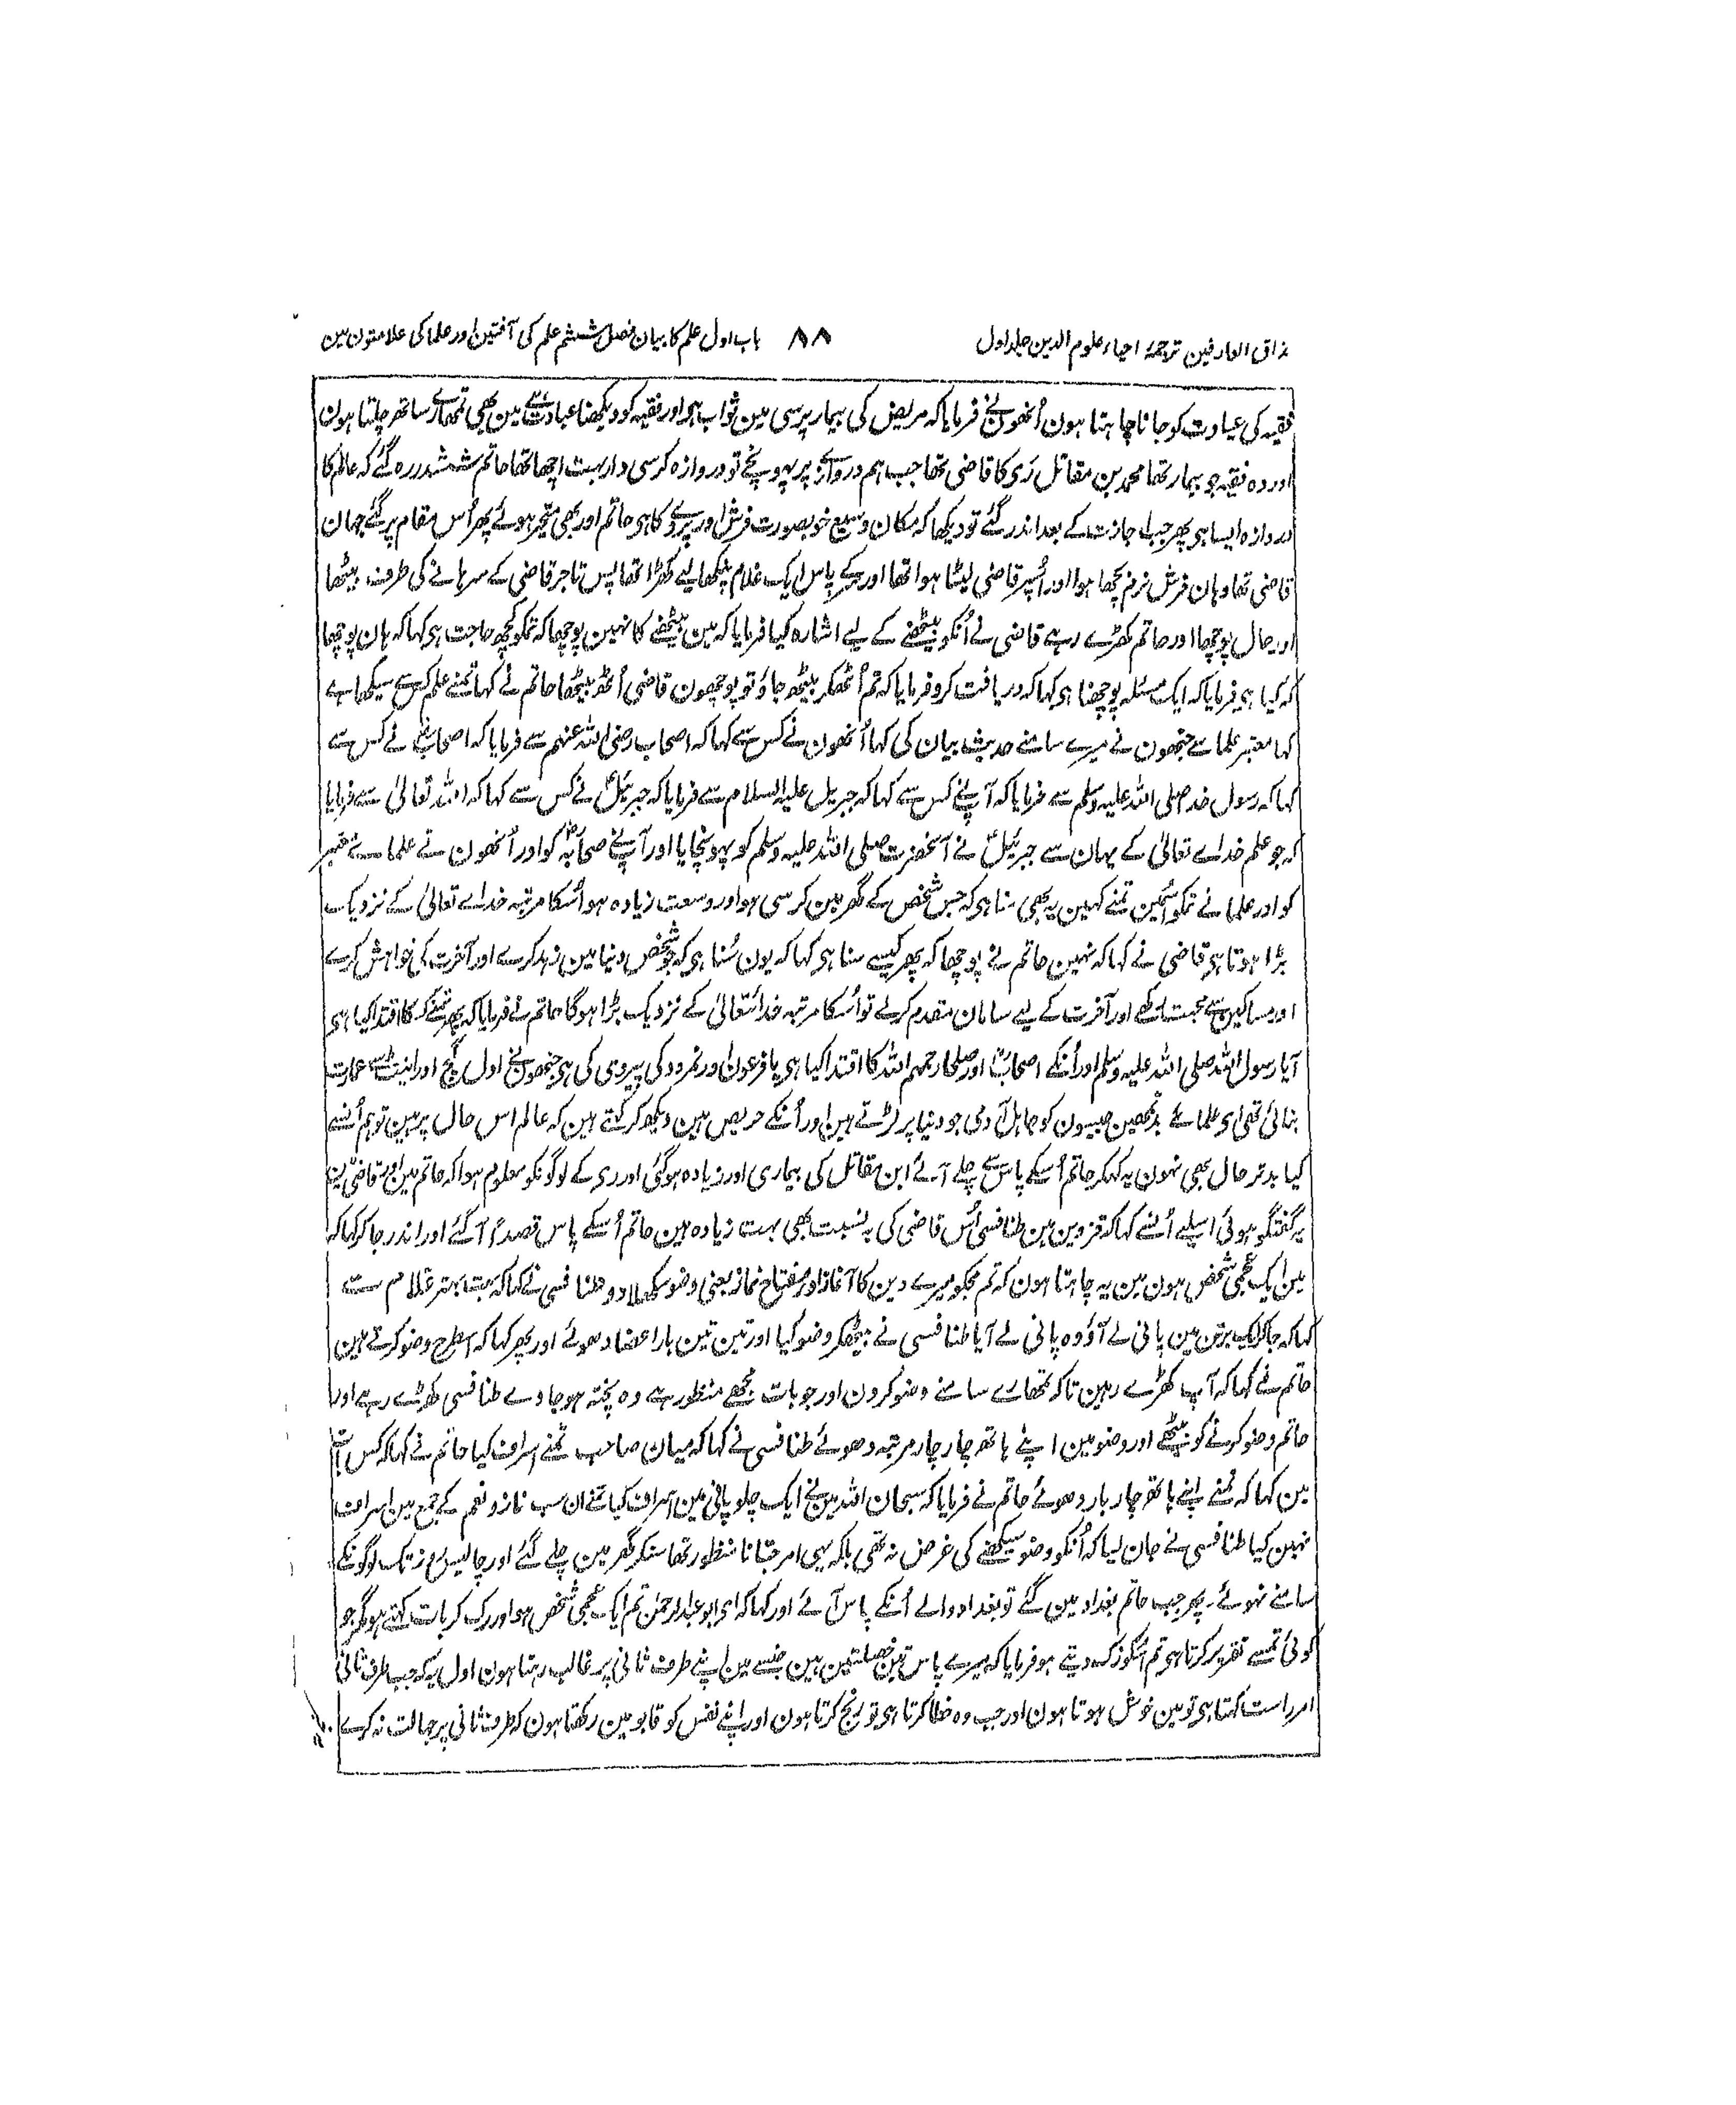 مذاق العارفین ترجمۂ احیاء علوم الدین جلد اول ۸۸ باب اول علم کا بیان فصل ششم علم کی آفتین اور علما کی علامتون مین
فقیہ کی عیادت کو جانا چاہتا ہون اُنھون نے فرمایا کہ مریض کی بیمار پرسی مین ثواب ہی اور فقیہ کو دیکھنا عبادت ہے مین بھی تمھارے ساتھ چلتا ہون
اور وہ فقیہ جو بیمار تھا محمد بن مقاتل رَی کا قاضی تھا جب ہم دروازے پر پہونچے تو دروازہ کرسی دار بہت اچھا تھا حاتم ششدر رہ گئے کہ عالم کا
دروازہ ایسا ہی پھر جب اجازت کے بعد اندر گئے تو دیکھا کہ مکان وسیع خوبصورت فرش اور پردے کا ہی حاتم اور بھی متحیر ہوئے پھر اُس مقام پر گئے جہان
قاضی تھا وہان فرش نرم بچھا ہوا اور اُسپر قاضی لیٹا ہوا تھا اور سرکے پاس ایک غلام پنکھا لیے کھڑا تھا پس تاجر قاضی کے سرہانے کی طرف بیٹھا
اور حال پوچھا اور حاتم کھڑے رہے قاضی نے اُنکو بیٹھنے کے لیے اشارہ کیا فرمایا کہ مین بیٹھنے کا نہین پوچھا کہ تمکو کچھ حاجت ہی کہا کہ ہان پوچھا
کہ کیا ہی فرمایا کہ ایک مسئلہ پوچھنا ہی کہا کہ دریافت کرو فرمایا کہ تم اُٹھکر بیٹھ جاؤ تو پوچھون قاضی اُٹھ بیٹھا حاتم نے کہا تمنے علم کس سے سیکھا ہے
کہا معتبر علما سے جنھون نے میرے سامنے حدیث بیان کی کہا اُنھون نے کس سے کہا کہ اصحاب رضی اللہ عنہم سے فرمایا کہ اصحابؓ نے کس سے
کہا کہ رسول خدا صلی اللہ علیہ وسلم سے فرمایا کہ آپنے کس سے کہا کہ جبریل علیہ السلام سے فرمایا کہ جبرئیلؑ نے کس سے کہا کہ اللہ تعالیٰ سے فرمایا
کہ جو علم خداے تعالیٰ کے یہان سے جبرئیلؑ نے آنحضرت صلی اللہ علیہ وسلم کو پہونچایا اور آپنے صحابہؓ کو اور اُنھون نے علماے معتبر
کو اور علما نے تمکو اُسمین تمنے کہین یہ بھی سنا ہی کہ جس شخص کے گھر مین کرسی ہو اور وسعت زیادہ ہو اُسکا مرتبہ خداے تعالیٰ کے نزدیک
بڑا ہوتا ہی قاضی نے کہا کہ نہین حاتم نے پوچھا کہ پھر کیسے سنا ہی کہا کہ یون سُنا ہی کہ جو شخص دنیا مین زہد کرے اور آخرت کی خواہش کرے
اور مساکین سے محبت رکھے اور آخرت کے لیے سامان مقدم کرلے تو اُسکا مرتبہ خداے تعالیٰ کے نزدیک بڑا ہوگا حاتم نے فرمایا کہ پھر تمنے کسکا اقتدا کیا ہی
آیا رسول اللہ صلی اللہ علیہ وسلم اور اُنکے اصحابؓ اور صلحا رحمہم اللہ کا اقتدا کیا ہی یا فرعون اور نمرود کی پیروی کی ہی جنھون نے اول گچ اور اینٹ سے عمارت
بنائی تھی ای علماے بد تمھین جیسون کو جاہل آدمی جو دنیا پر لڑتے ہین اور اُنکے حریص ہین دیکھ کر کہتے ہین کہ عالم اس حال پر ہین تو ہم اُنسے
کیا بدتر حال بھی نہون یہ کہکر حاتم اُسکے پاس سے چلے آئے ابن مقاتل کی بیماری اور زیادہ ہوگئی اور ری کے لوگونکو معلوم ہوا کہ حاتم مین اور قاضی مین
یہ گفتگو ہوئی اسلیے اُنسے کہا کہ قزوین مین طنافسی اُس قاضی کی بہ نسبت بھی بہت زیادہ ہین حاتم اُسکے پاس قصداً آگئے اور اندر جا کر کہا کہ
مین ایک عجمی شخص ہون مین یہ چاہتا ہون کہ تم مجکو میرے دین کا آغاز اور مفتاح نماز یعنی وضو سکھلا دو طنافسی نے کہا کہ بہت بہتر غلام سے
کہا کہ جا کر ایک برتن مین پانی لے آؤ وہ پانی لے آیا طنافسی نے بیٹھکر وضو کیا اور تین تین بار اعضا دھوئے اور پھر کہا کہ اسطرح وضو کرتے ہین
حاتم نے کہا کہ آپ کھڑے رہین تاکہ تمھارے سامنے وضو کرون اور جو بات مجھے منظور ہے وہ پختہ ہو جاوے طنافسی کھڑے رہے اور
حاتم وضو کرنے کو بیٹھے اور وضو مین اپنے ہاتھ چار چار مرتبہ دھوئے طنافسی نے کہا کہ میان صاحب تمنے اسراف کیا حاتم نے کہا کہ کس بات
مین کہا کہ تمنے اپنے ہاتھ چار بار دھوئے حاتم نے فرمایا کہ سبحان اللہ مین نے ایک چلو پانی مین اسراف کیا تمنے ان سب ناز و نعم کے جمع مین اسراف
نہین کیا طنافسی نے جان لیا کہ اُنکو وضو سیکھنے کی غرض نہ تھی بلکہ یہی امر جتانا منظور تھا سنکر گھر مین چلے گئے اور چالیس روز تک لوگونکے
سامنے نہوئے۔ پھر جب حاتم بغداد مین گئے تو بغداد والے اُنکے پاس آئے اور کہا کہ ای ابو عبد الرحمن تم ایک عجمی شخص ہو اور رک کر بات کہتے ہو مگر جو
کوئی تمسے تقریر کرتا ہی تم اُسکو زک دیتے ہو فرمایا کہ میرے پاس تین خصلتین ہین جنسے مین اپنے طرف ثانی پر غالب رہتا ہون اول یہ کہ جب طرف ثانی
امر راست کہتا ہی تو مین خوش ہوتا ہون اور جب وہ خطا کرتا ہی تو رنج کرتا ہون اور اپنے نفس کو قابو مین رکھتا ہون کہ طرف ثانی پر جہالت نہ کرے